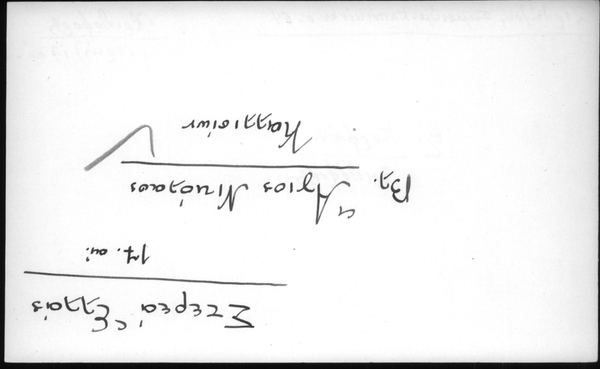 Στερεά Ἑλλάς
17. αἰ.
Βλ. Ἅγιος Νικόλαος
Καλλισίων